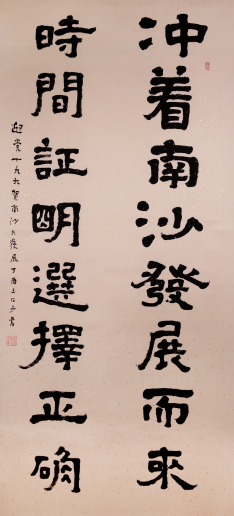 冲着南沙發展而來
時間証明選擇正确
迎党十九大賀南沙大發展丁酉